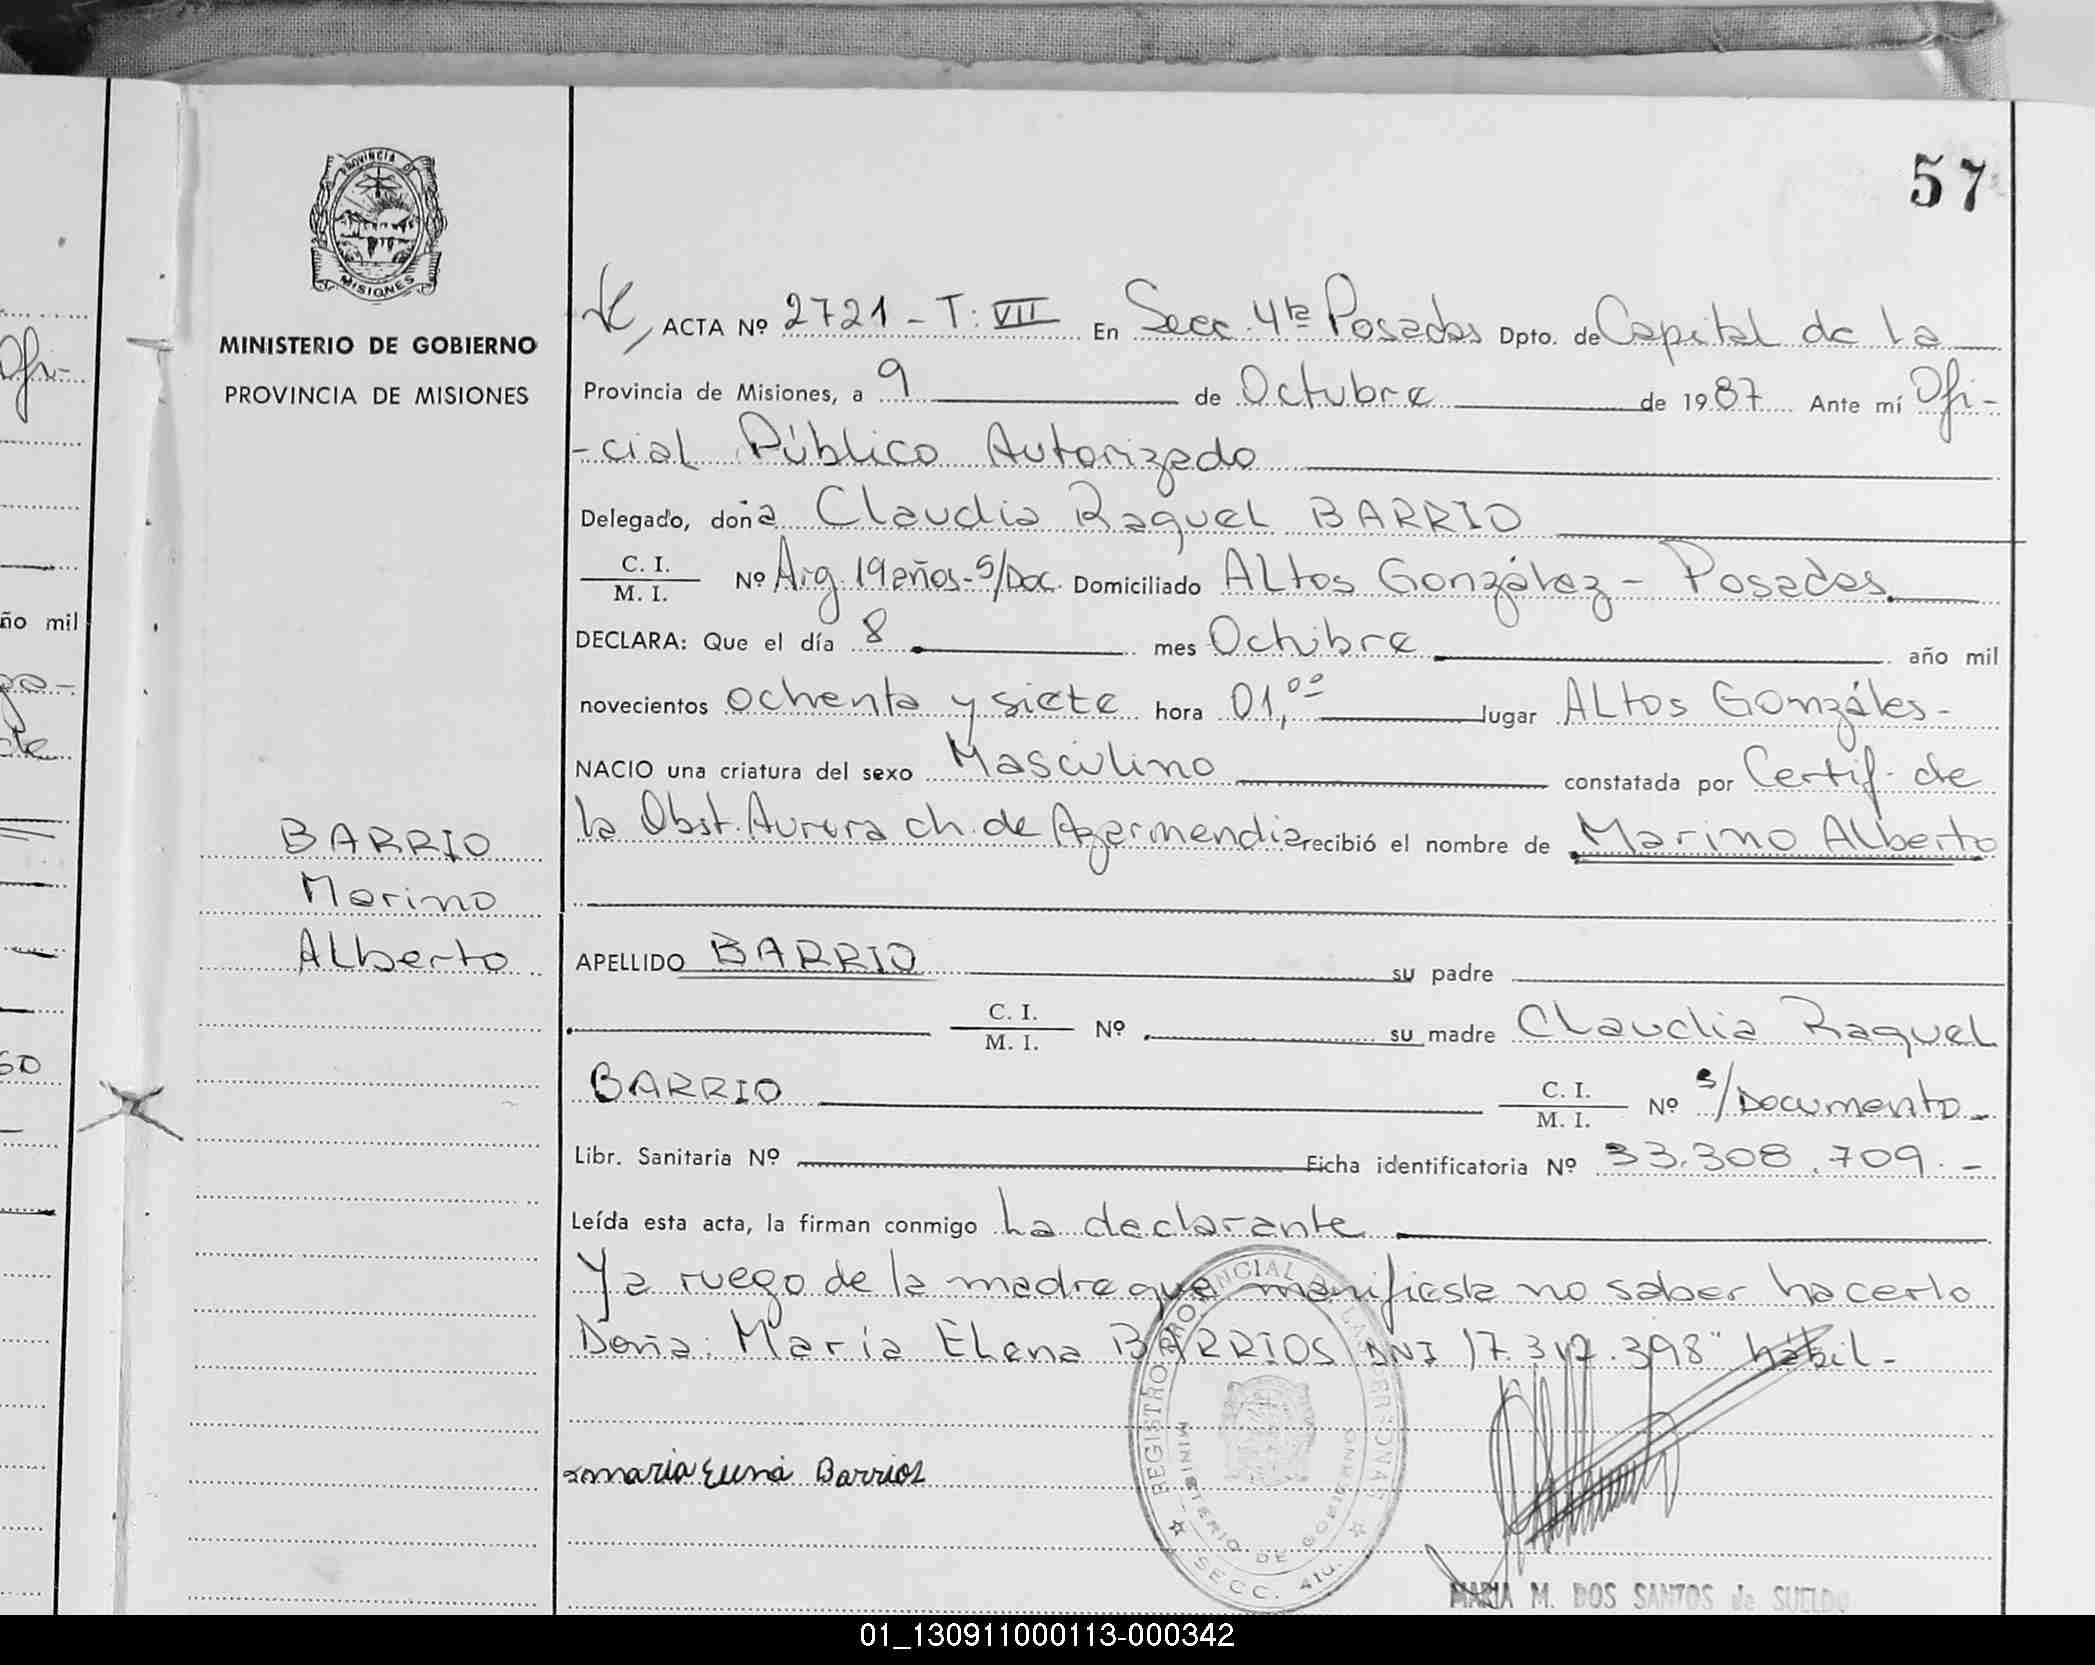 57
PROVINCIA D
MISIONES
MINISTERIO DE GOBIERNO
PROVINCIA DE MISIONES
BARRIO
Marino
Alberto
ACTA Nº 2721 - T: VII En Secc. 4ta Posadas Dpto. de Capital de la
Provincia de Misiones, a 9 de Octubre de 1987 Ante mí Ofi-
-cial Público Autorizado
Delegado, doña Claudia Raquel BARRIO
C. I.
M. I. Nº Arg. 19 años - s/Doc. Domiciliado ALtos González - Posadas
DECLARA: Que el día 8 mes Octubre año mil
novecientos ochenta y siete hora 01,00 lugar ALtos Gonzáles -
NACIO una criatura del sexo Masculino constatada por Certif. de
la Obst. Aurora ch. de Azarmendia recibió el nombre de Marino Alberto
APELLIDO BARRIO su padre
C. I.
M. I. Nº su madre Claudia Raquel
BARRIO C. I.
M. I. Nº s/Documento -
Libr. Sanitaria Nº Ficha identificatoria Nº 33.308.709. -
Leída esta acta, la firman conmigo La declarante
Y a ruego de la madre que manifiesta no saber hacerlo
Doña: María Elena BARRIOS DNI 17.312.398" hábil -
maria Elena Barrios
REGISTRO PROVINCIAL DE LAS PERSONAS
MINISTERIO DE GOBIERNO
SECC. 4ta.
MARIA M. DOS SANTOS de SUELDO
Ofi-
ño mil
01_130911000113-000342